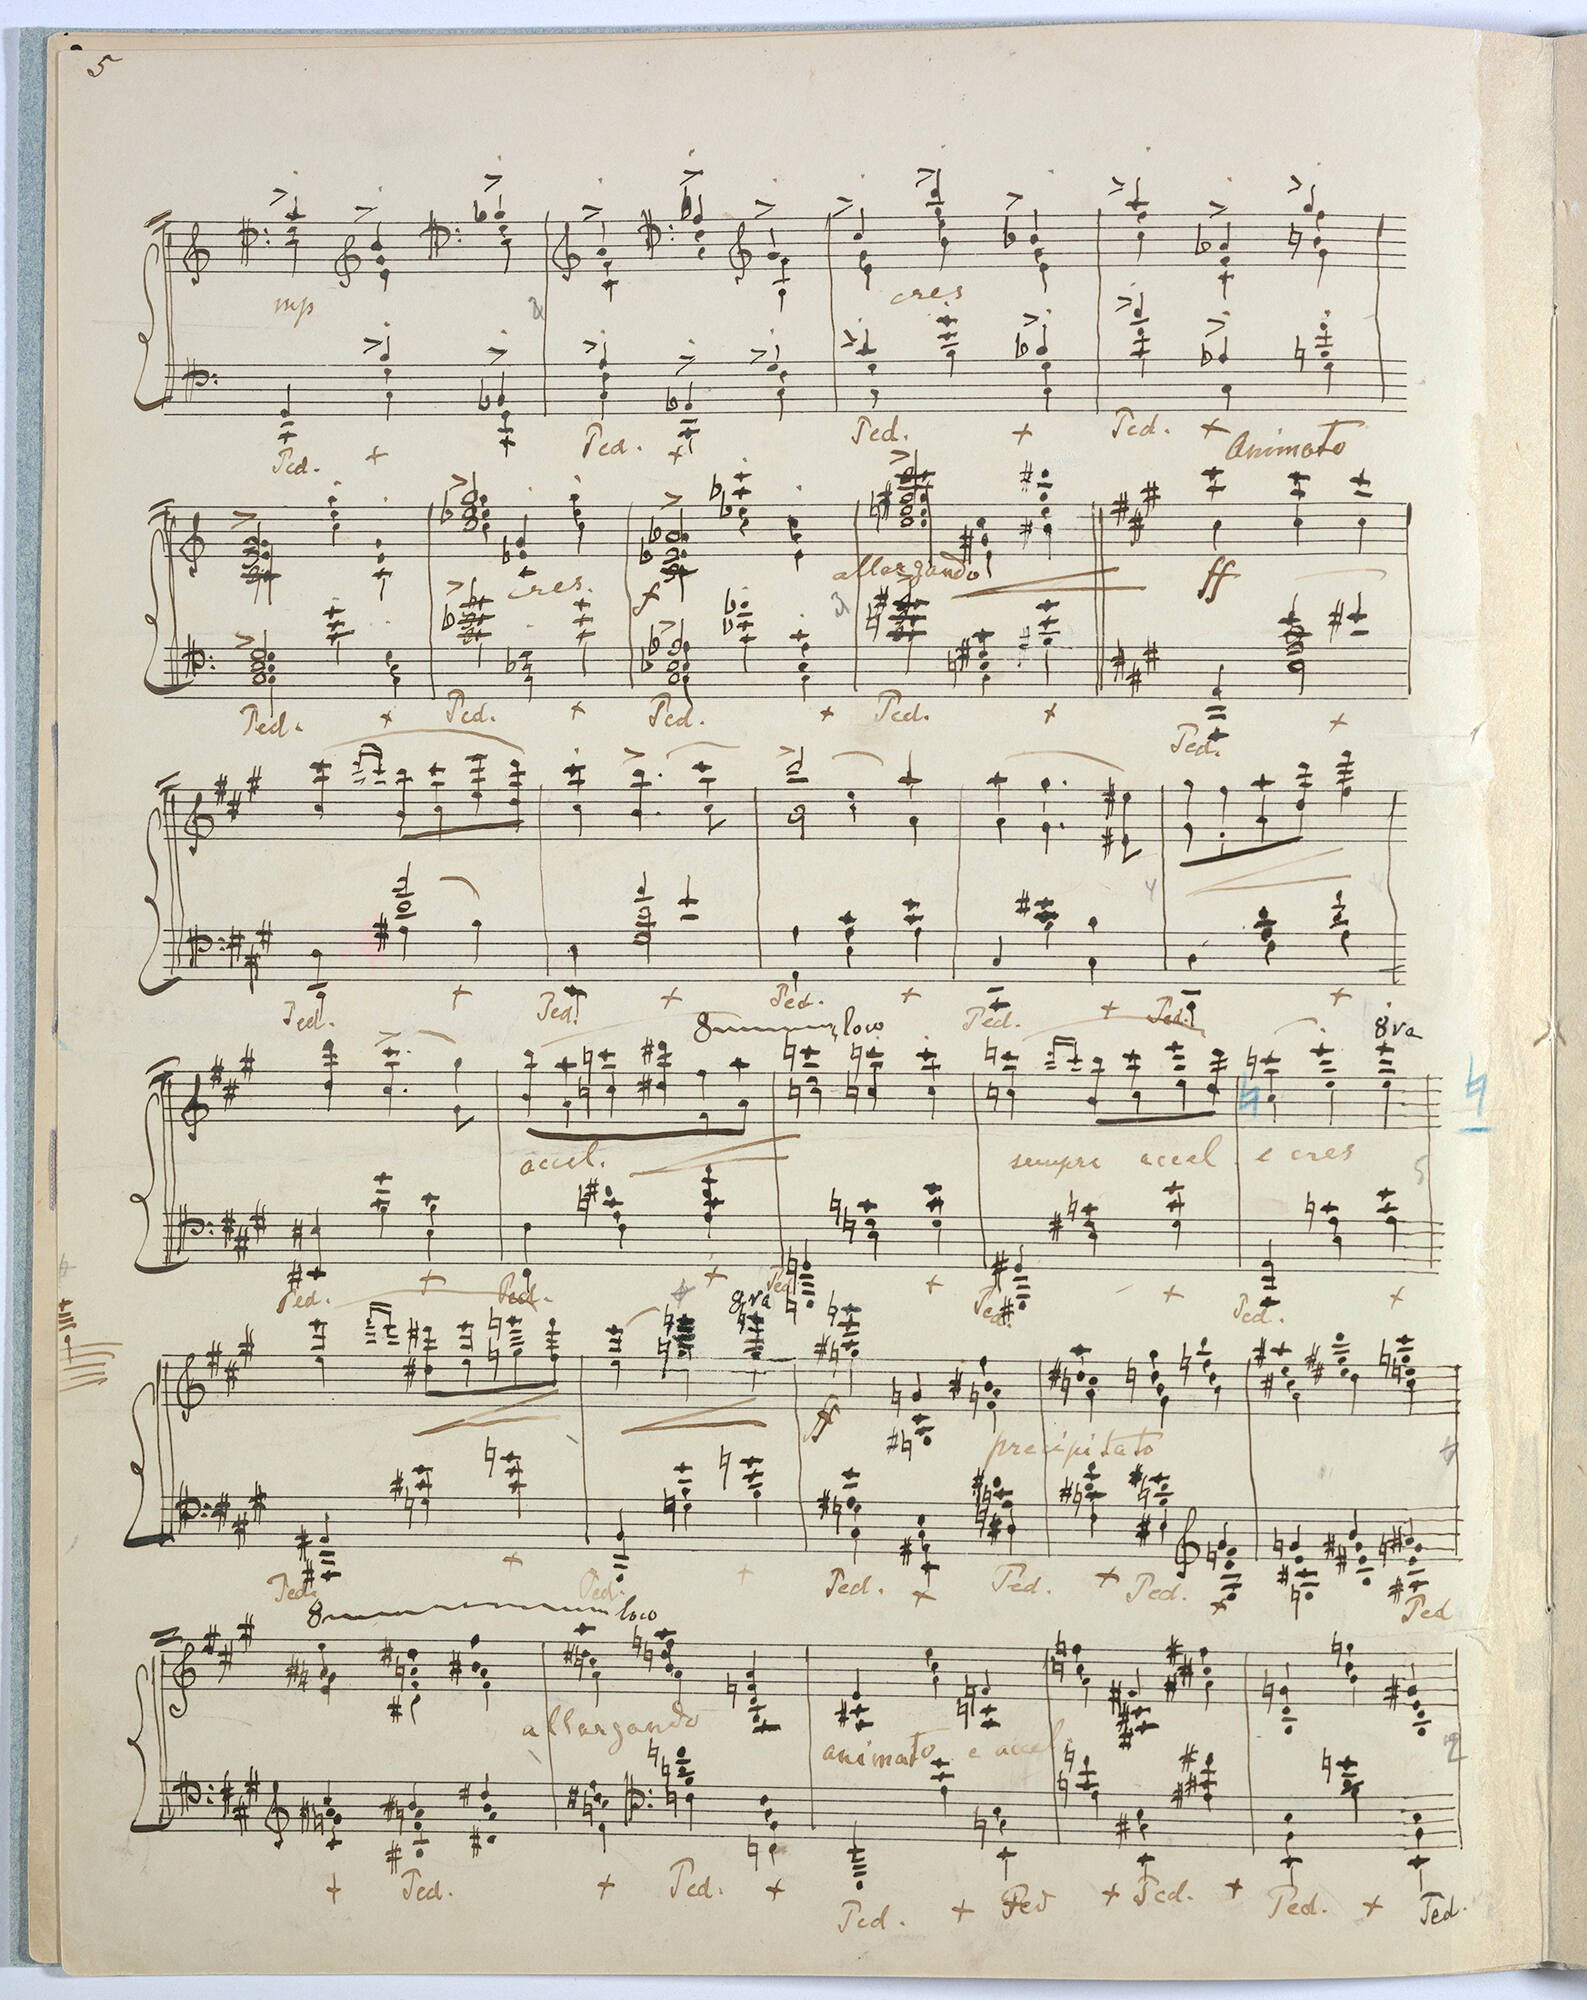 5
mp cres
Ped. + Ped. + Ped. + Ped. +
Animato
cres. f allargando ff
Ped. + Ped. + Ped. + Ped. + Ped. +
Ped. + Ped. + Ped. + Ped. + Ped. +
8 loco 8va
accel. sempre accel e cres
Ped. + Ped. + Ped. + Ped. + Ped. +
8va
ff precipitato
Ped. + Ped. + Ped. + Ped. + Ped. + Ped
8 loco
allargando animato e accel.
+ Ped. + Ped. + Ped. + Ped + Ped. + Ped. + Ped.